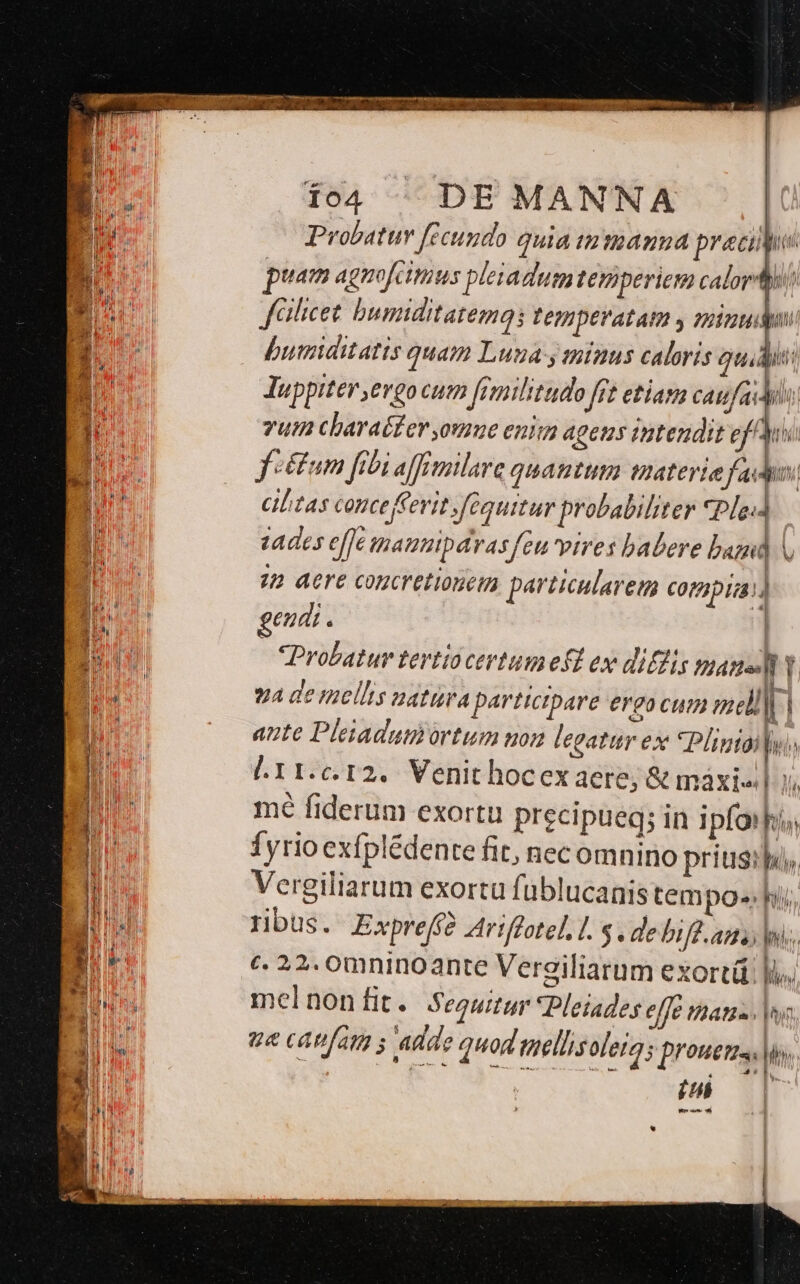 104 DE MANNA
Probatur ſecundo quia in manna præci⸗
puam agnoſcimus pleiadum temperiem calor
ſcilicet humiditatemq; temperatam, minus
humiditatis quam Luna, minus caloris quã
Iuppiter, ergo cum ſimilitudo ſit etiam cauſa⸗
rum character, omne enim agens intendit ef⸗
fectum ſibi aſſimilare quantum materiæ fa⸗
cilitas conceſſerit, ſequitur probabiliter Ple⸗
iades eſſe mannipâras ſeu vires habere hanc
in aere concretionem particularem compin⸗
gendi.
Probatur tertio certum eſt ex dictis man⸗
na de mellis natura participare ergo cum mel
ante Pleiadum ortum non legatur ex Plinio
l. 11. c. 12. Venit hoc ex aere, & maxi⸗
mè ſiderum exortu præcipueq; in ipſo
ſyrio exſplẽdente fit, nec omnino prius
Vergiliarum exortu ſublucanis tempo⸗
ribus. Expreſsè Ariſtotel. l. 5. de hiſt. an.
c. 22. Omnino ante Vergiliarum exortũ
mel non fit. Sequitur Pleiades eſſe man⸗
næ cauſam; adde quod mellis oleiq; prouen⸗
tui